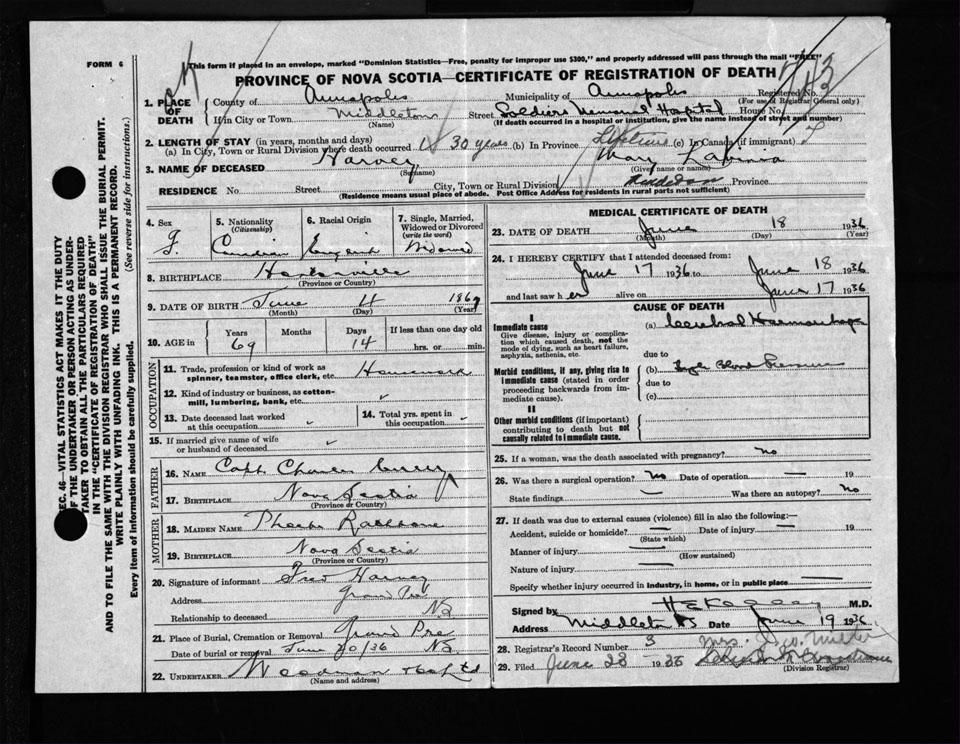 FORM 6
This form if placed in an envelope, marked "Dominion Statistics—Free, penalty for improper use $300," and properly addressed will pass through the mail "FREE"
PROVINCE OF NOVA SCOTIA—CERTIFICATE OF REGISTRATION OF DEATH
1. PLACE OF DEATH
County of Annapolis Municipality of Annapolis Registered No.
(For use of Registrar General only)
If in City or Town Middleton Street Soldiers Memorial Hospital House No.
(Name) (If death occurred in a hospital or institution, give the name instead of street and number)
2. LENGTH OF STAY (in years, months and days)
(a) In City, Town or Rural Division where death occurred 30 years (b) In Province Lifetime (c) In Canada (if immigrant)
3. NAME OF DECEASED Harvey Mary Lavinia
(Surname) (Given name or names)
RESIDENCE No Street City, Town or Rural Division Province
(Residence means usual place of abode. Post Office Address for residents in rural parts not sufficient)
4. Sex F.
5. Nationality (Citizenship) Canadian
6. Racial Origin English
7. Single, Married, Widowed or Divorced (write the word) Widowed
8. BIRTHPLACE
(Province or Country)
9. DATE OF BIRTH June 4 1867
(Month) (Day) (Year)
10. AGE in Years 69 Months Days 14 If less than one day old hrs. or min.
OCCUPATION
11. Trade, profession or kind of work as spinner, teamster, office clerk, etc. Housework
12. Kind of industry or business, as cotton-mill, lumbering, bank, etc.
13. Date deceased last worked at this occupation
14. Total yrs. spent in this occupation
15. If married give name of wife or husband of deceased
FATHER
16. NAME Capt. Curry
17. BIRTHPLACE Nova Scotia
(Province or Country)
MOTHER
18. MAIDEN NAME Phoebe Rathbone
19. BIRTHPLACE Nova Scotia
(Province or Country)
20. Signature of informant Fred Harvey
Address Grand Pre
Relationship to deceased NS
21. Place of Burial, Cremation or Removal Grand Pre
Date of burial or removal June 20/36 NS
22. UNDERTAKER
(Name and address)
MEDICAL CERTIFICATE OF DEATH
23. DATE OF DEATH June 18 1936
(Month) (Day) (Year)
24. I HEREBY CERTIFY that I attended deceased from:
June 17 1936 to June 18 1936
and last saw her alive on June 17 1936
CAUSE OF DEATH
I
Immediate cause
Give disease, injury or complication which caused death, not the mode of dying, such as heart failure, asphyxia, asthenia, etc.
(a) Cerebral Haemorrhage
due to
Morbid conditions, if any, giving rise to immediate cause (stated in order proceeding backwards from immediate cause).
(b) High Blood Pressure
due to
(c)
II
Other morbid conditions (if important) contributing to death but not causally related to immediate cause.
25. If a woman, was the death associated with pregnancy? no
26. Was there a surgical operation? no Date of operation — 19
State findings — Was there an autopsy? no
27. If death was due to external causes (violence) fill in also the following:—
Accident, suicide or homicide? — Date of injury — 19
(State which)
Manner of injury —
(How sustained)
Nature of injury —
Specify whether injury occurred in industry, in home, or in public place —
Signed by M.D.
Address Middleton NS Date June 19 1936
28. Registrar's Record Number 3
29. Filed June 23 1936
(Division Registrar)
SEC. 46—VITAL STATISTICS ACT MAKES IT THE DUTY
OF THE UNDERTAKER OR PERSON ACTING AS UNDER-
TAKER TO OBTAIN ALL THE PARTICULARS REQUIRED
IN THE "CERTIFICATE OF REGISTRATION OF DEATH"
AND TO FILE THE SAME WITH THE DIVISION REGISTRAR WHO SHALL ISSUE THE BURIAL PERMIT.
WRITE PLAINLY WITH UNFADING INK. THIS IS A PERMANENT RECORD.
Every item of information should be carefully supplied. (See reverse side for instructions.)